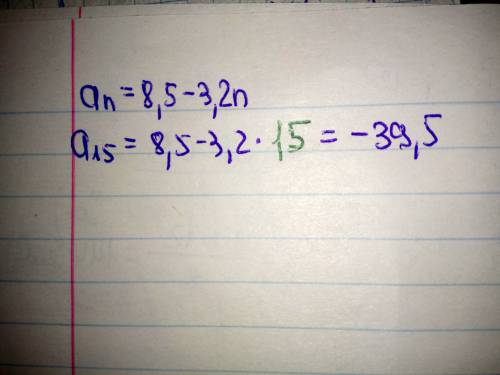 an = 8,5 - 3,2n
a15 = 8,5 - 3,2 · 15 = -39,5